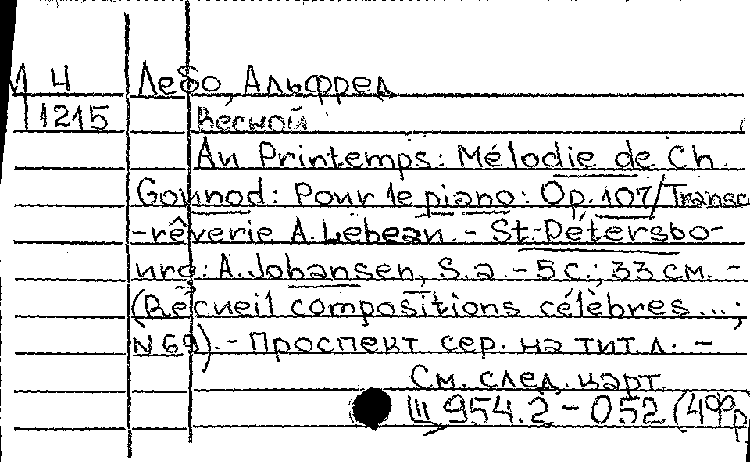 М 4 Лебо, Альфред
1215 Весной
Au Printemps: Mélodie de Ch.
Gounod: Pour le piano: Op. 107/Transc
-rêverie A. Lebeau. - St-Pétersbo-
urg: A. Johansen, S.a. - 5 с.; 33 см. -
(Recueil compositions célèbres...;
N 69). - Проспект сер. на тит. л. -
См. след. карт.
Ш 954.2 - 052 (4Фр